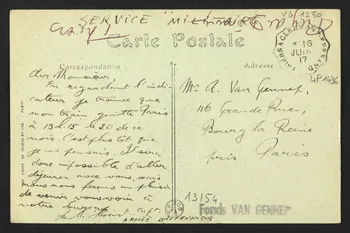 SERVICE MILITAIRE
VG 1230
Carte Postale
Correspondance
Adresse
16
JUIN
17
GP1436
Cher Monsieur,
En regardant l'indi-
cateur je trouve que
mon train quitte Paris
à 13h15 le 20 de ce
mois. C'est plus tôt que
je ne pensais. Il sera
donc impossible d'aller
déjeuner avec vous, mais
nous nous ferons un plaisir
de venir vous voir à
Mr A. Van Gennep,
116 Grande Rue,
Bourg la Reine
près Paris
13154
Fonds VAN GENNEP